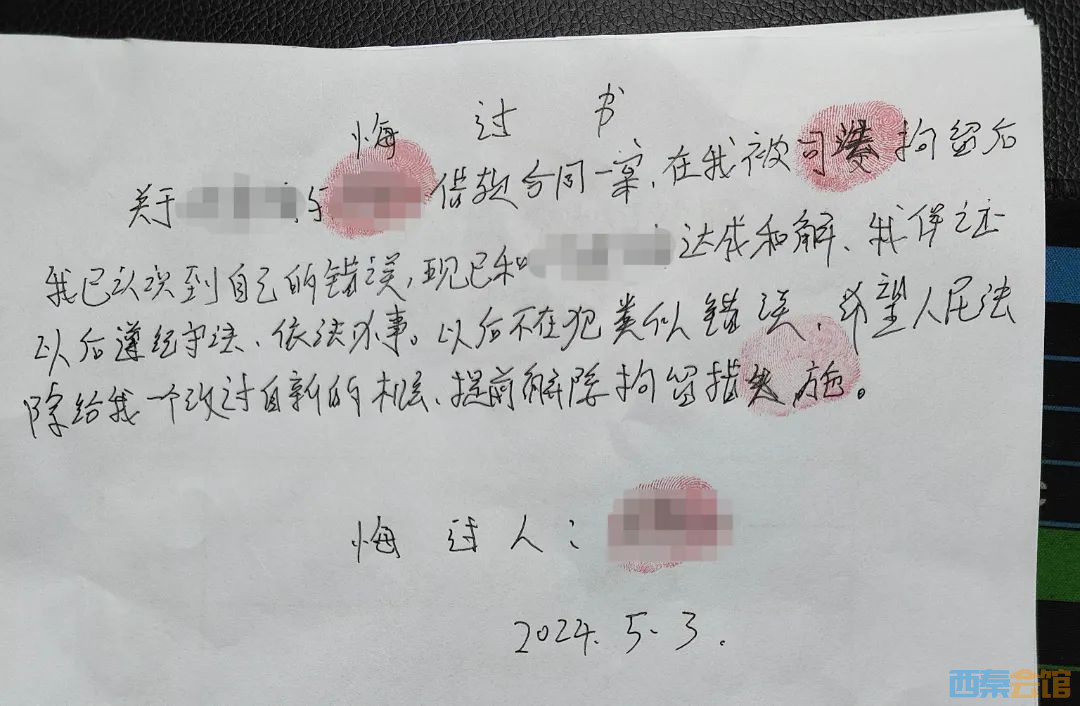 悔 过 书
关于 与 借款合同一案,在我被司法拘留后
我已认识到自己的错误,现已和 达成和解、我保证
以后遵纪守法、依法办事。以后不在犯类似错误、希望人民法
院给我一个改过自新的机会、提前解除拘留措施。
悔 过 人:
2024.5.3.
西秦会馆